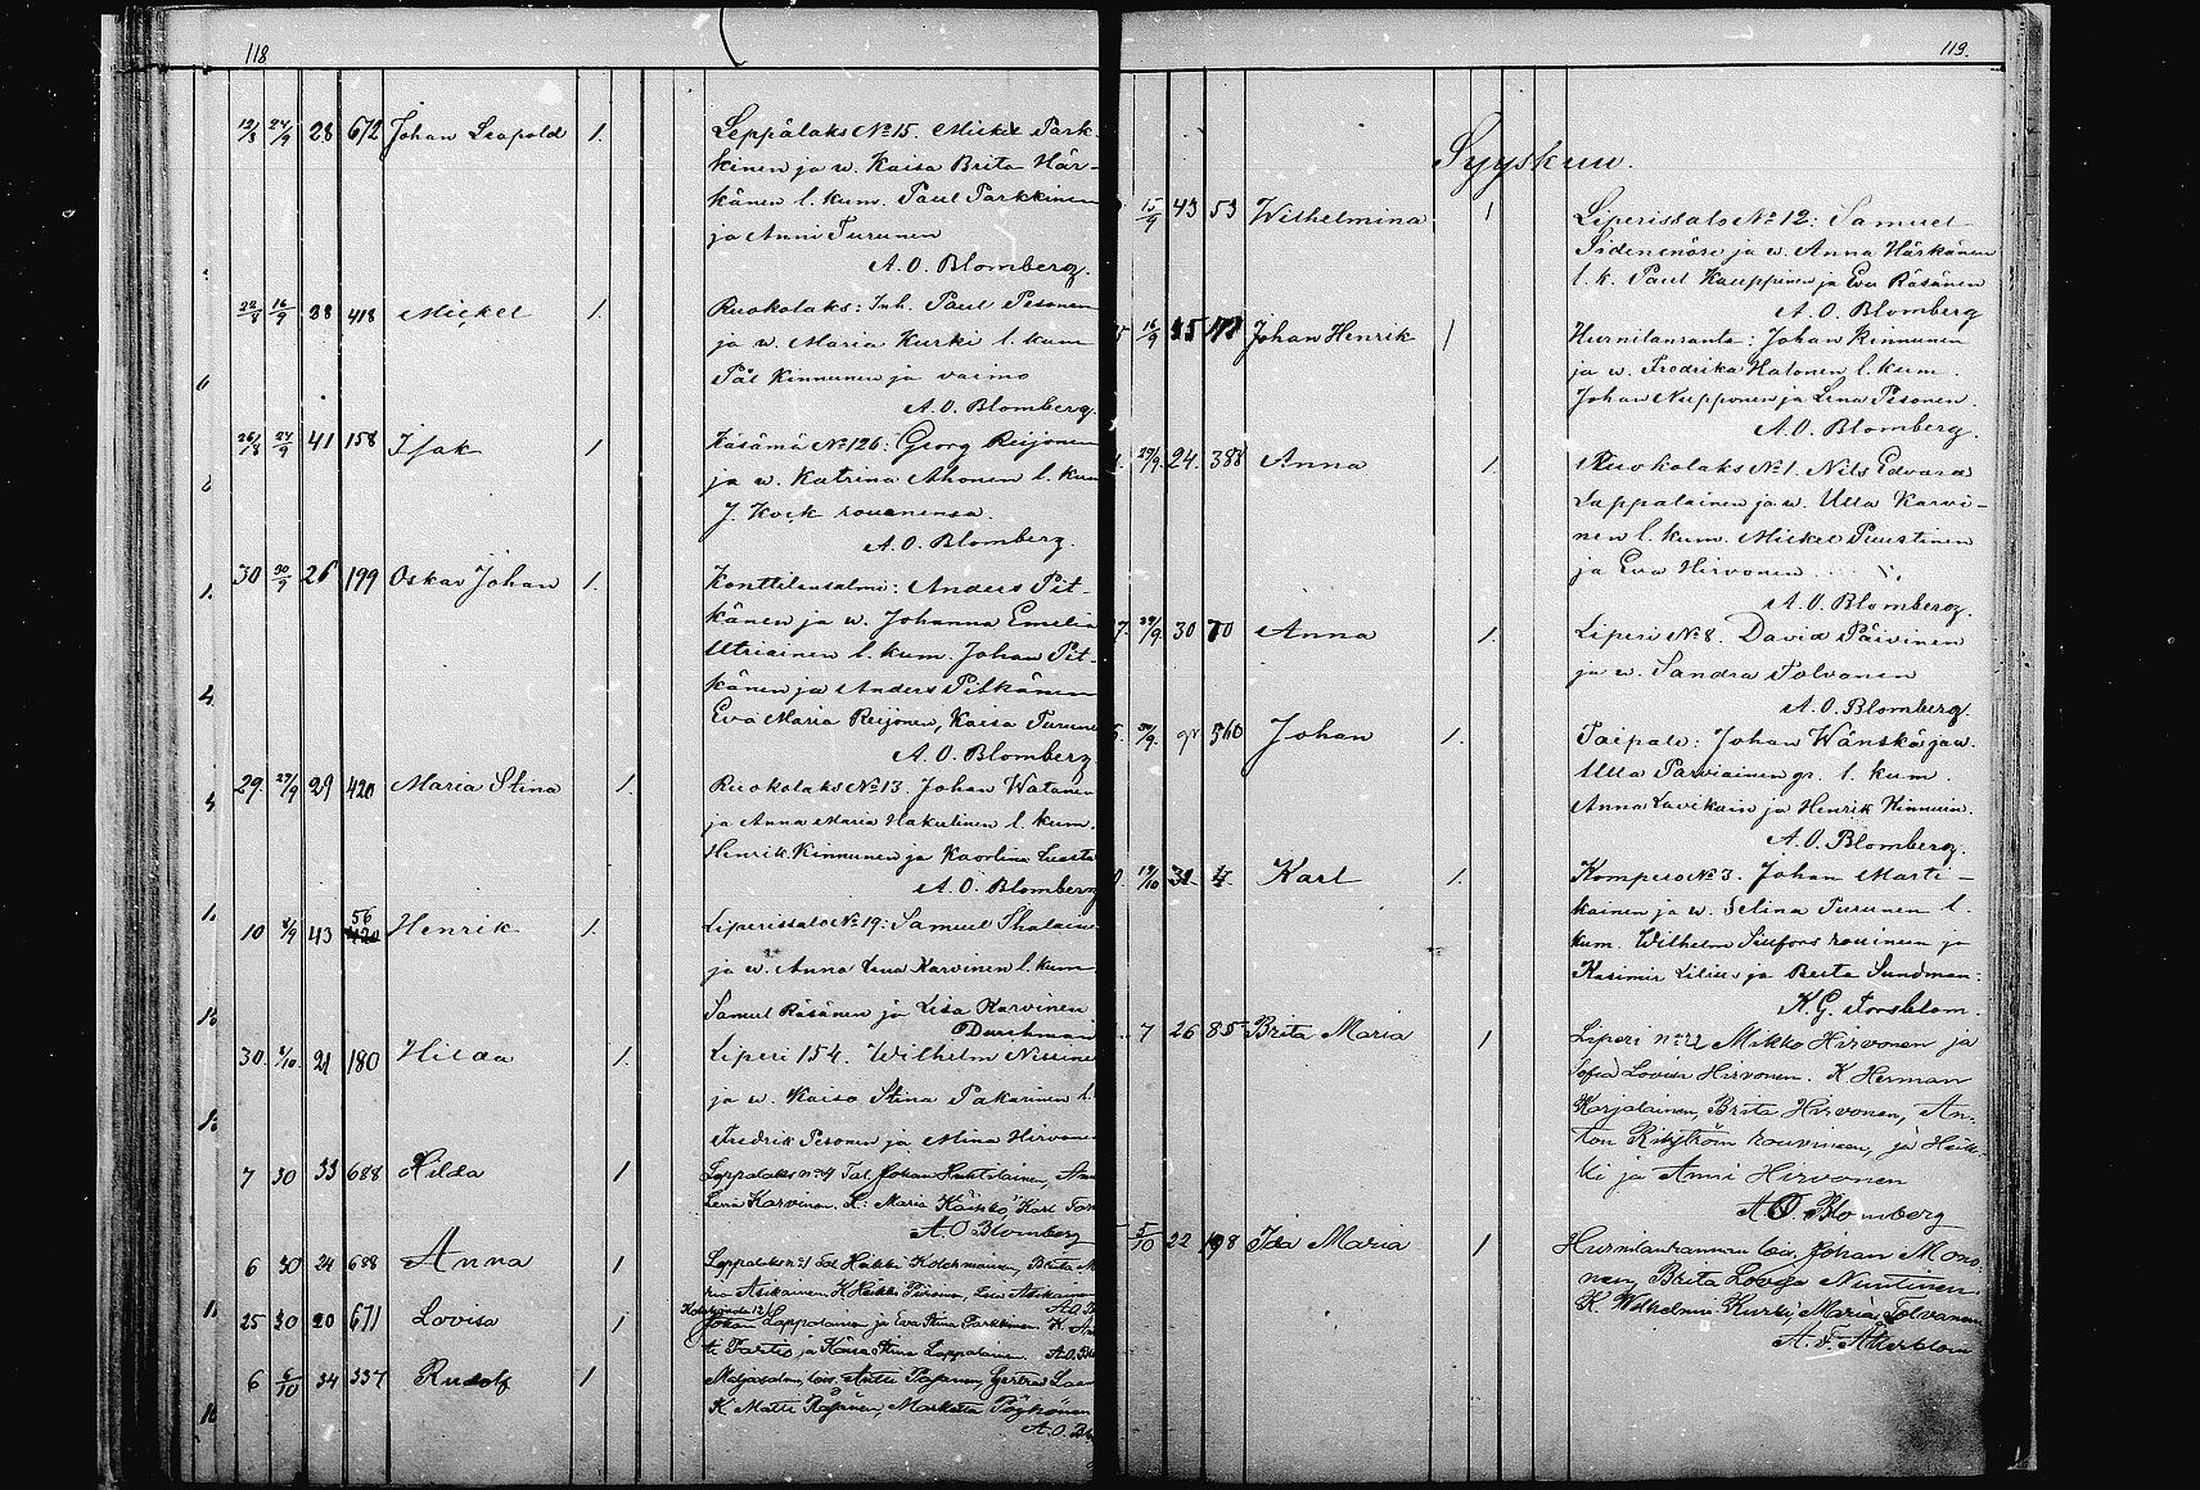 118
12/8 24/9 28 672 Johan Leopold 1. Leppälaks No 15. Mickel Park-
kinen ja w. Kaisa Brita Här-
känen l. kum. Paul Parkkinen
ja Anni Turunen
A. O. Blomberg.
22/8 16/9 28 418 Mickel 1. Ruokolaks: Inh. Paul Pesonen
ja w. Maria Kurki l. kum
Pål Kinnunen ja vaimo
A. O. Blomberg.
26/8 24/9 41 158 Isak 1 Käsämä No 126: Georg Reijonen
ja w. Katrina Ahonen l. kum
J. Kock rouvanensa.
A. O. Blomberg.
30 30/9 26 199 Oskar Johan 1. Konttilansalmi: Anders Pit-
känen ja w. Johanna Emelia
Utriainen l. kum. Johan Pit-
känen ja Anders Pitkänen
Eva Maria Reijonen, Kaisa Turune
A. O. Blomberg
29. 27/9 29 420 Maria Stina 1. Ruokolaks No 13. Johan Watanen
ja Anna Maria Hakulinen l. kum.
Henrik Kinnunen ja Kaorlina
A. O. Blomberg
10 8/9 43 56 420 Henrik 1. Liperissalo No 19: Samuel Ihalaine
ja w. Anna Lena Karvinen l. kum
Samuel Räsänen ja Lisa Karvinen
Durchman
30. 8/10. 21 180 Hilda 1. Liperi 154. Wilhelm Nissine
ja w. Kaisa Stina Pakarinen l.
Fredrik Pesonen ja Mina Hirvone
7 30 33 688 Hilda 1 Leppälaks no 4 Tal. Johan Huhtilainen, Ann
Lena Karvinen. K: Maria Kaikko, Karl
A. O. Blomberg
6 30 24 688 Anna 1 Leppälaks no 1 Tal. Heikki Kolehmainen, Brita M
ria Asikainen. K. Heikki Piironen, Lisa Asikainen
A. O. B
25 30 20 671 Lovisa 1 12 Johan Lappalainen ja Eva Stina Parkkinen. K. An
ti Partio, ja Kaisa Stina Lappalainen. A. O. Bl
6 6/10 34 337 Rudolf 1 lois. Antti Pajanen, Gertrud
K. Matti Räsänen, Marketta Pöyhönen
A. O. Bl
119.
Syyskuu.
15/9 43 53 Wilhelmina 1 Liperissalo No 12: Samuel
Sidensnöre ja w. Anna Härkänen
l. k. Paul Kauppinen ja Eva Räsänen
A. O. Blomberg
16/9 Johan Henrik 1 Hurnilanranta: Johan Kinnunen
ja w. Fredrika Hatonen l. kum.
Johan Nupponen ja Lena Pesonen.
A. O. Blomberg.
29/9. 24. 388 Anna 1. Ruokolaks No 1. Nils Edvard
Lappalainen ja w. Ulla Karvi-
nen l. kum. Mickel Puustinen
ja Eva Hirvonen.
A. O. Blomberg.
29/9. 30 70 Anna 1. Liperi No 8. David Päivinen
ja w. Sandra Tolvanen
A. O. Blomberg.
30/9. gr 560 Johan 1. Taipale: Johan Wänskä ja w.
Ulla Parviainen gr. l. kum.
Anna Lavikain ja Henrik Kinnuin.
A. O. Blomberg.
19/10 31. 4. Karl 1. Kompero No 3. Johan Marti-
kainen ja w. Selina Turunen l.
kum. Wilhelm Siufors rouvineen ja
Kasimir Lilius ja Berta Sundman:
K. G. Forsblom.
7 26 85 Brita Maria 1 Liperi no Mikko Hirvonen ja
Sofia Lovisa Hirvonen. K. Herman
Karjalainen, Brita Hirvonen, An-
ton Rikström rouvineen, ja Heik-
ki ja Anni Hirvonen
A. O. Blomberg
5/10 22 198 Ida Maria 1 Hurnilanrannan lois. Johan Mono-
nen, Brita Lovisa Nuutinen.
K. Wilhelmi Kurki, Maria Tolvanen
A. F. Atterblom